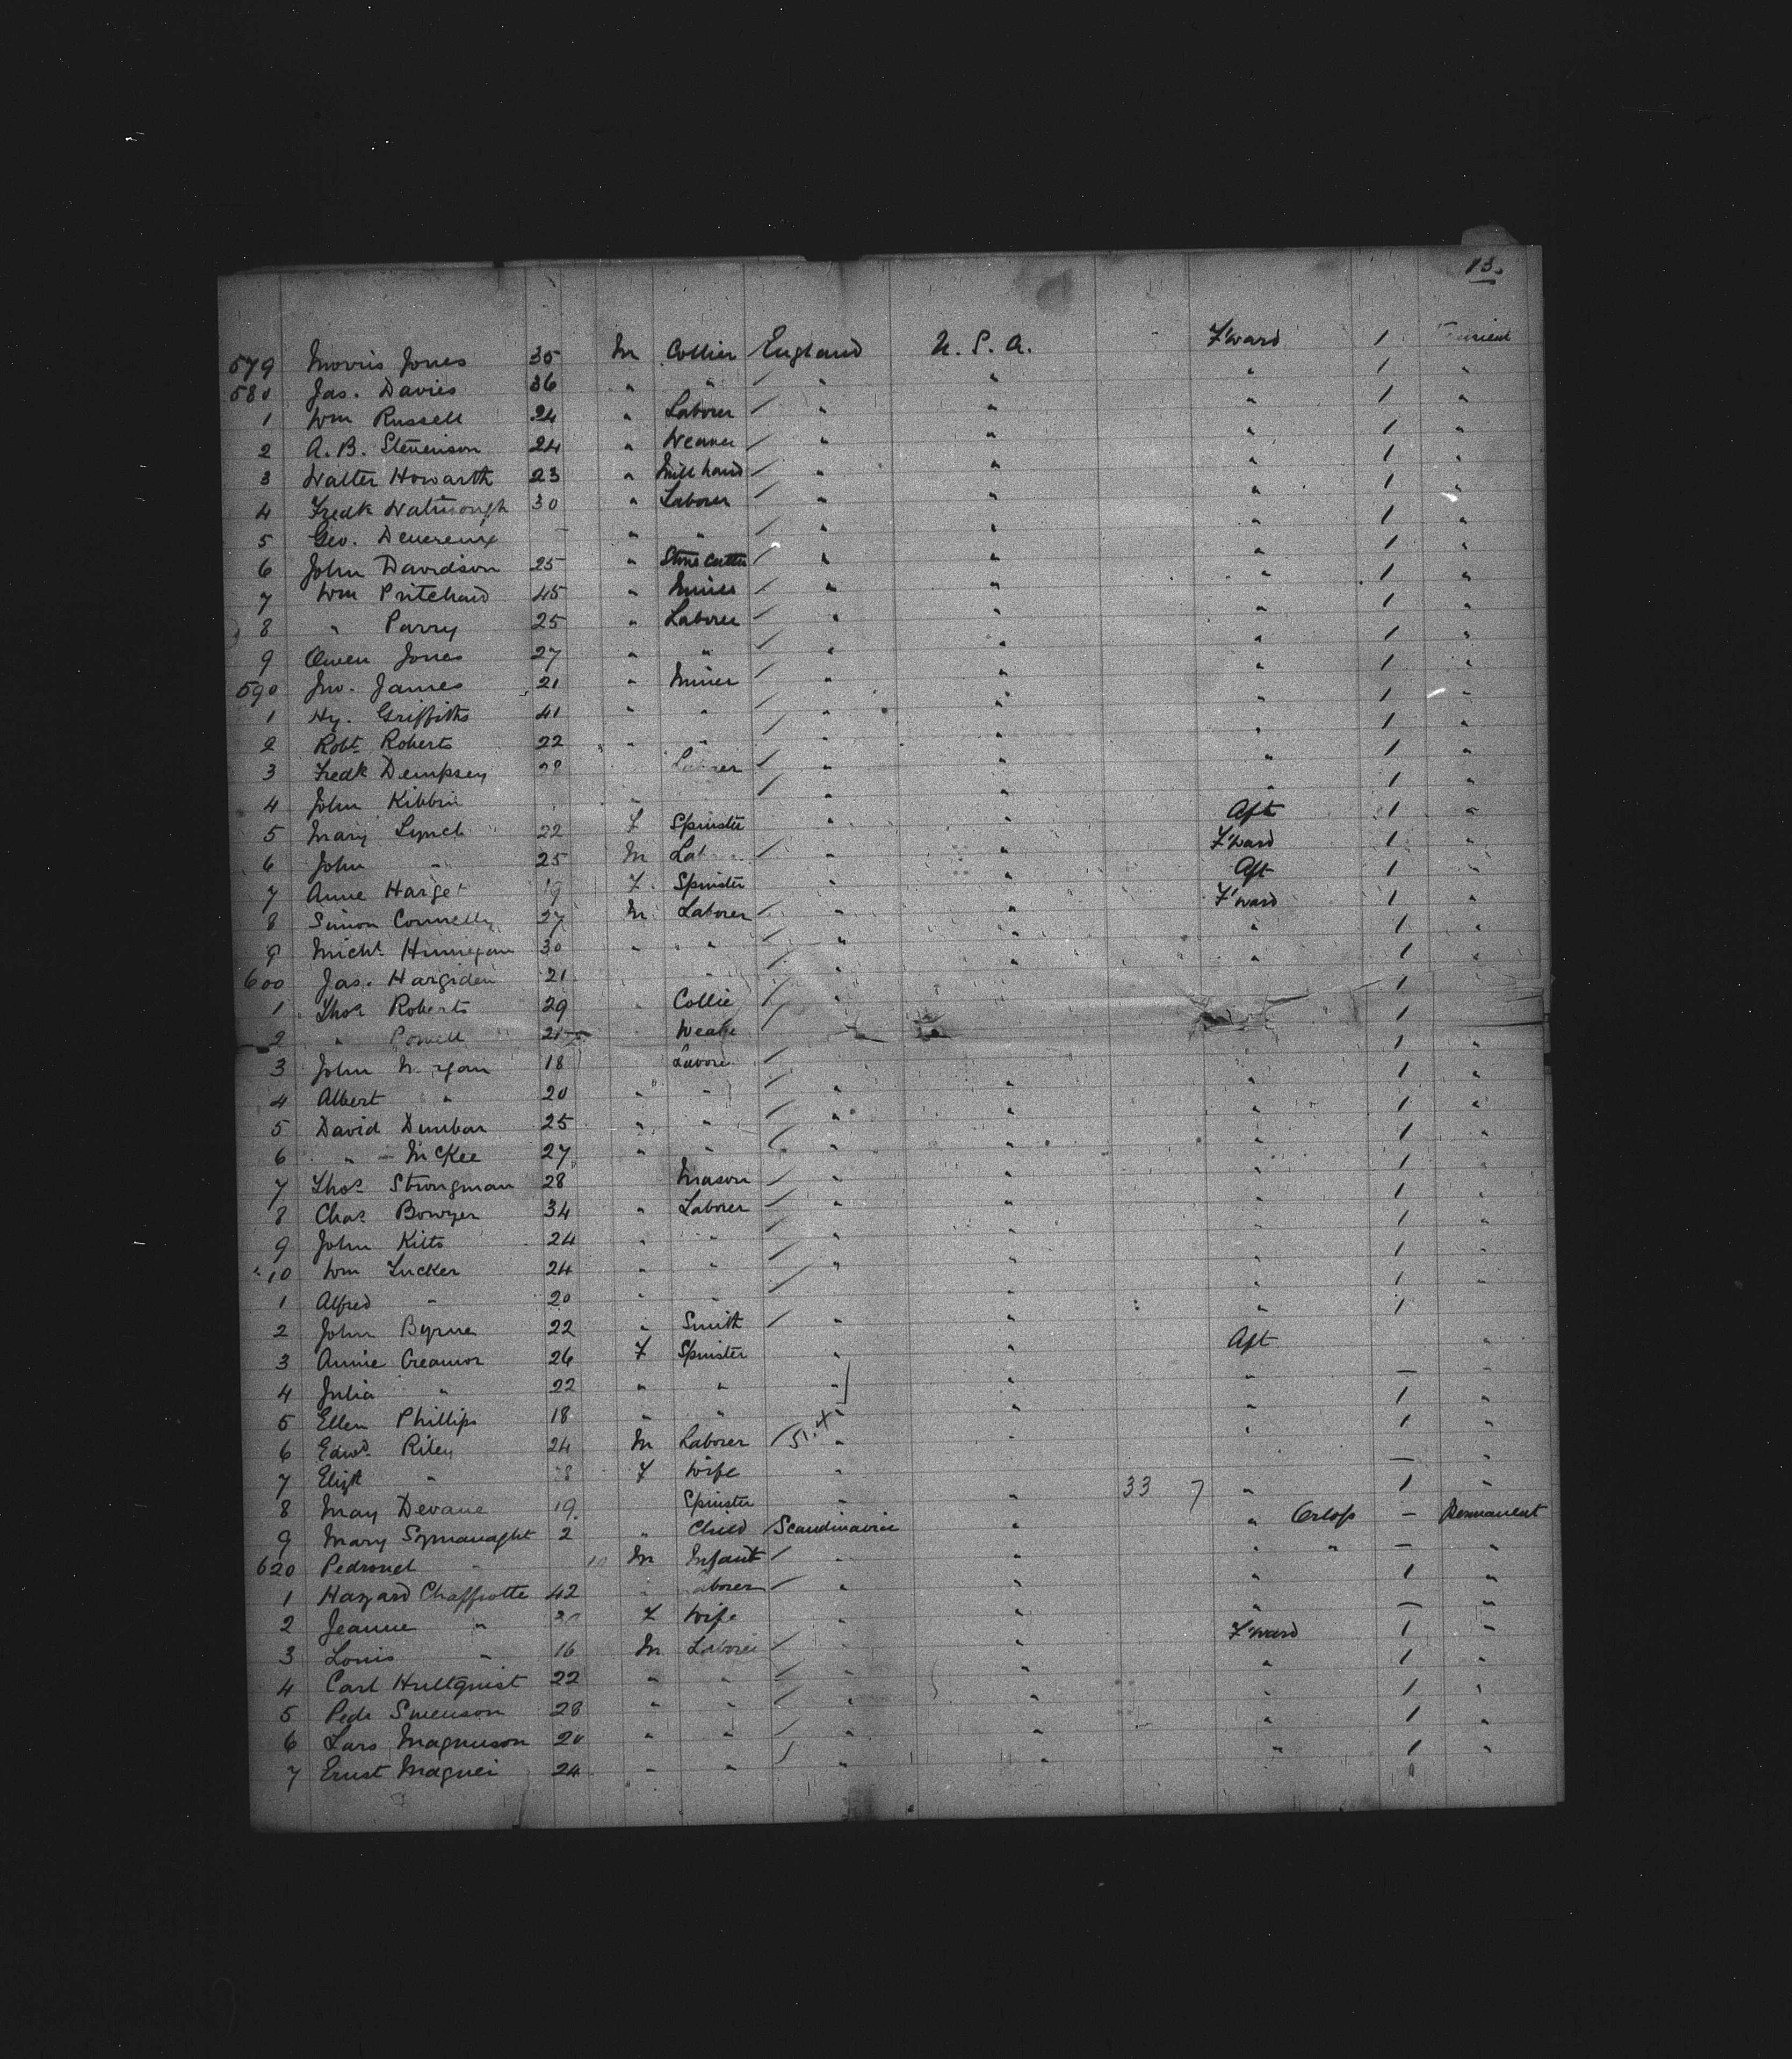 13.
579 Morris Jones 35 M Collier England U.S.A. F'ward 1
580 Jas. Davies 36 " " " " " 1 "
1 Wm Russell 24 " Laborer " " " 1 "
2 A.B. Stevenson 24 " Weaver " " " 1 "
3 Walter Howarth 23 " Mill hand " " " 1 "
4 Fredk Watmough 30 " Laborer " " " 1 "
5 Geo. Devereux - " " " " " 1 "
6 John Davidson 25 " Stone Cutter " " " 1 "
7 Wm Pritchard 45 " Miner " " " 1 "
8 " Parry 25 " Laborer " " " 1 "
9 Owen Jones 27 " " " " " 1 "
590 Jno. James 21 " Miner " " " 1 "
1 Hy. Griffiths 41 " " " " " 1 "
2 Robt Roberts 22 " " " " " 1 "
3 Fredk Dempsey 28 Laborer " " " 1 "
4 John Kibbin " " " " 1 "
5 Mary Lynch 22 F Spinster " " Aft 1 "
6 John " 25 M " " F'ward 1 "
7 Anne 19 F Spinster " " Aft 1 "
8 Simon Connelly 27 M Laborer " " F'ward 1 "
9 Michl Hinnegan 30 " " " " " 1 "
600 Jas. Hargiden 21 " " " " 1 "
1 Thos Roberts 29 Collie " 1
2 " Powell 1
3 John 18 1 "
4 Albert " 20 " " " " " 1 "
5 David Dunbar 25 " " " " " 1 "
6 " McKee 27 " " " " " 1 "
7 Thos Strongman 28 Mason " " " 1 "
8 Chas Bowyer 34 " Laborer " " " 1 "
9 John Kilts 24 " " " " " 1 "
10 Wm Tucker 24 " " " " " 1 "
1 Alfred " 20 " " " " 1 "
2 John Byrne 22 " Smith " " " 1
3 Annie Creamor 26 F Spinster " " Aft "
4 Julia " 22 " " " " " - "
5 Ellen Phillips 18 " " " " " 1 "
6 Edwd Riley 24 M Laborer " " " 1 "
7 Elizth " F Wife " - "
8 May Devane 19 Spinster " " 33 7 " 1 "
9 Mary Symanaght 2 " Child Scandinavia " " Orlop - Permanent
620 " 10 M Infant " " " " - "
1 Hazard Chaffiotte 42 " Laborer " " " 1 "
2 Jeanne " F Wife " " " - "
3 Louis " 16 M Laborer " F'ward 1 "
4 Carl Hultquist 22 " " " " " 1 "
5 Pedr Swenson 28 " " " " " 1 "
6 Lars Magnuson 20 " " " " " 1 "
7 Ernst Magnei 24 " " " " " 1 "